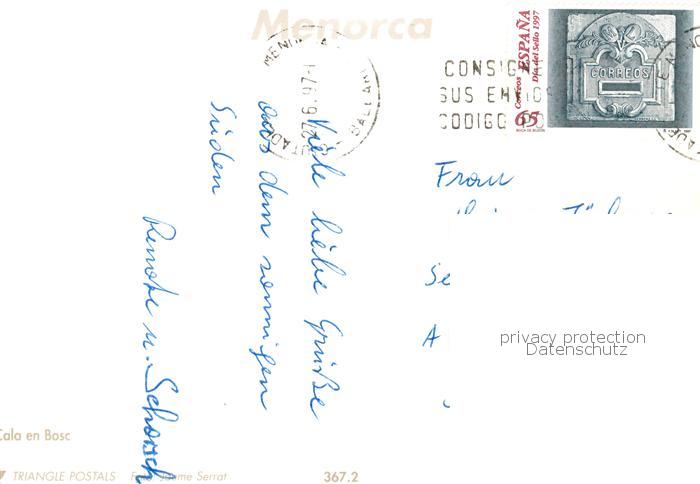 Menorca
CORREOS
ESPAÑA
Correos
Día del Sello 1997
65
CONSIG
SUS EN
CODIGO
Viele liebe Grüße
aus dem sonnigen
Süden
Renate u. Schorsch
Frau
Se
A
privacy protection
Datenschutz
Cala en Bosc
TRIANGLE POSTALS Foto: Jaume Serrat
367.2